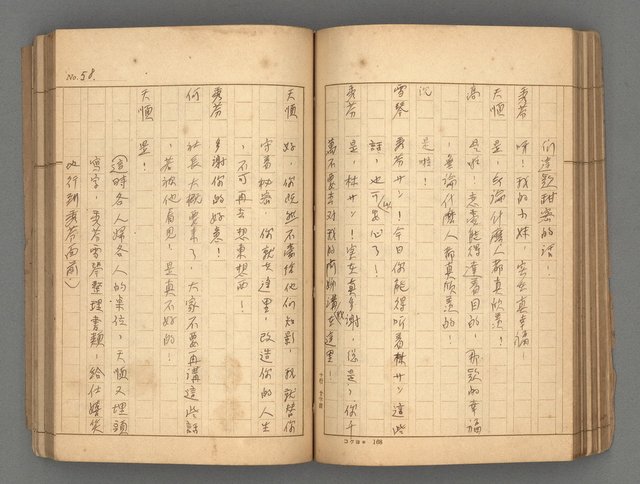 們這款甜蜜的話!
秀芬 呼!我的小妹,實在真幸福!
天順 是,無論什麼人都真欣羨!
高 是啦,意志能得達着目的,那款的幸福
,無論什麼人都真欣羨的!
沈 是啦!
雪琴 秀芬サン!今日你能得听着林サン這些
話,也可安心了!
秀芬 是,林サン!實在真多謝,但是,你千
萬不要去對我的阿姊講我在這里!
コクヨ 168
No. 58.
天順 好,你既然不愛給他們知影,我就替你
守着秘密,你就在這里,改造你的人生
,不可再去想東想西!
秀芬 多謝你的好意!
何 社長大概要來了,大家不要再講這些話
,若被他看見,是真不好的!
天順 是!
(這時各人歸各人的桌位,天順又埋頭
寫字,秀芬雪琴整理書類,給仕
行到秀芬面前)